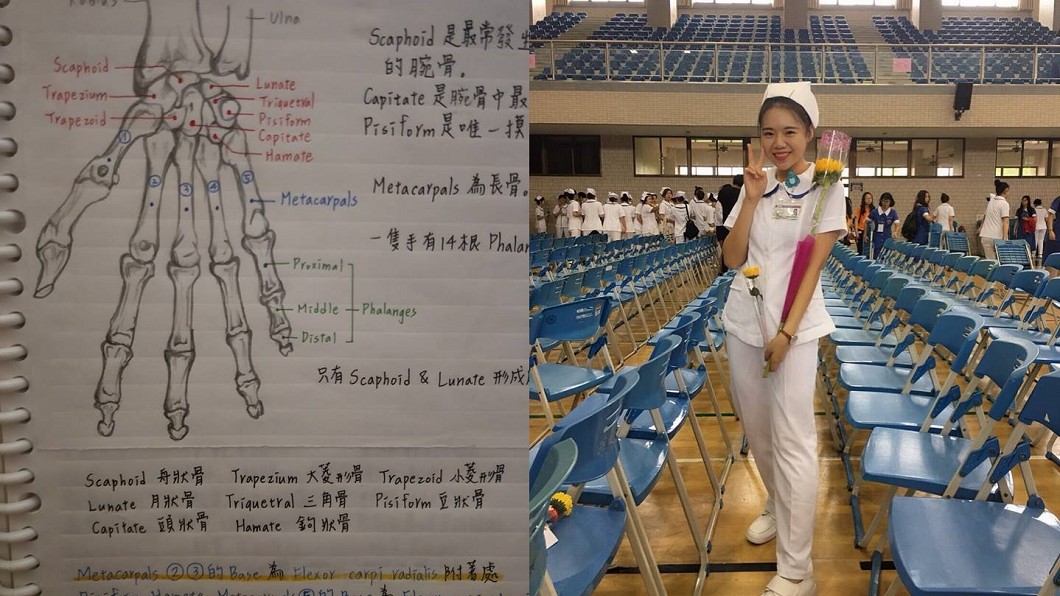 Radius
Ulna
Scaphoid
Trapezium
Trapezoid
Lunate
Triquetral
Pisiform
Capitate
Hamate
①
② ③ ④ ⑤
Metacarpals
Proximal
Middle
Distal
Phalanges
Scaphoid 是最常發生
的腕骨。
Capitate 是腕骨中最
Pisiform 是唯一摸
Metacarpals 為長骨。
一隻手有14根 Phalan
只有 Scaphoid & Lunate 形成
Scaphoid 舟狀骨 Trapezium 大菱形骨 Trapezoid 小菱形骨
Lunate 月狀骨 Triquetral 三角骨 Pisiform 豆狀骨
Capitate 頭狀骨 Hamate 鉤狀骨
Metacarpals ② ③ 的 Base 為 Flexor carpi radialis 附著處